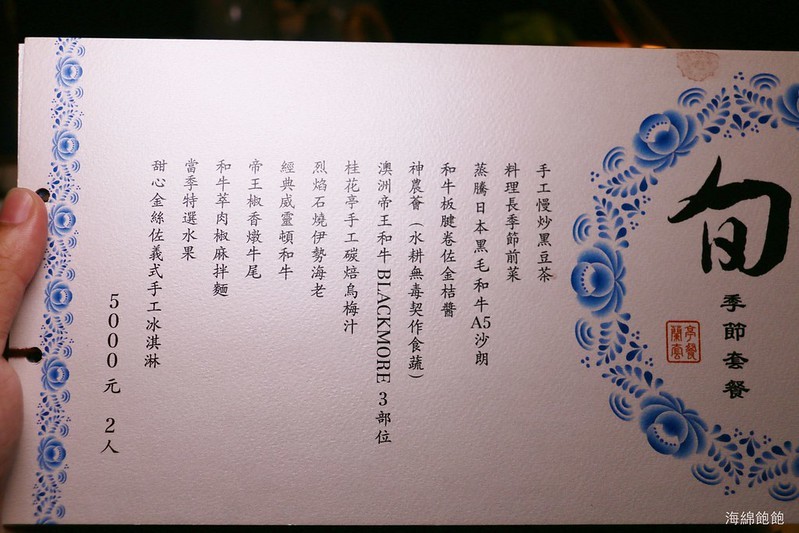 旬
季節套餐
手工慢炒黑豆茶
料理長季節前菜
蒸騰日本黑毛和牛A5沙朗
和牛板腱卷佐金桔醬
神農薈（水耕無毒契作食蔬）
澳洲帝王和牛BLACKMORE 3部位
桂花亭手工碳焙烏梅汁
烈焰石燒伊勢海老
經典威靈頓和牛
帝王椒香燉牛尾
和牛萃肉椒麻拌麵
當季特選水果
甜心金絲佐義式手工冰淇淋
5000元 2人
海綿飽飽